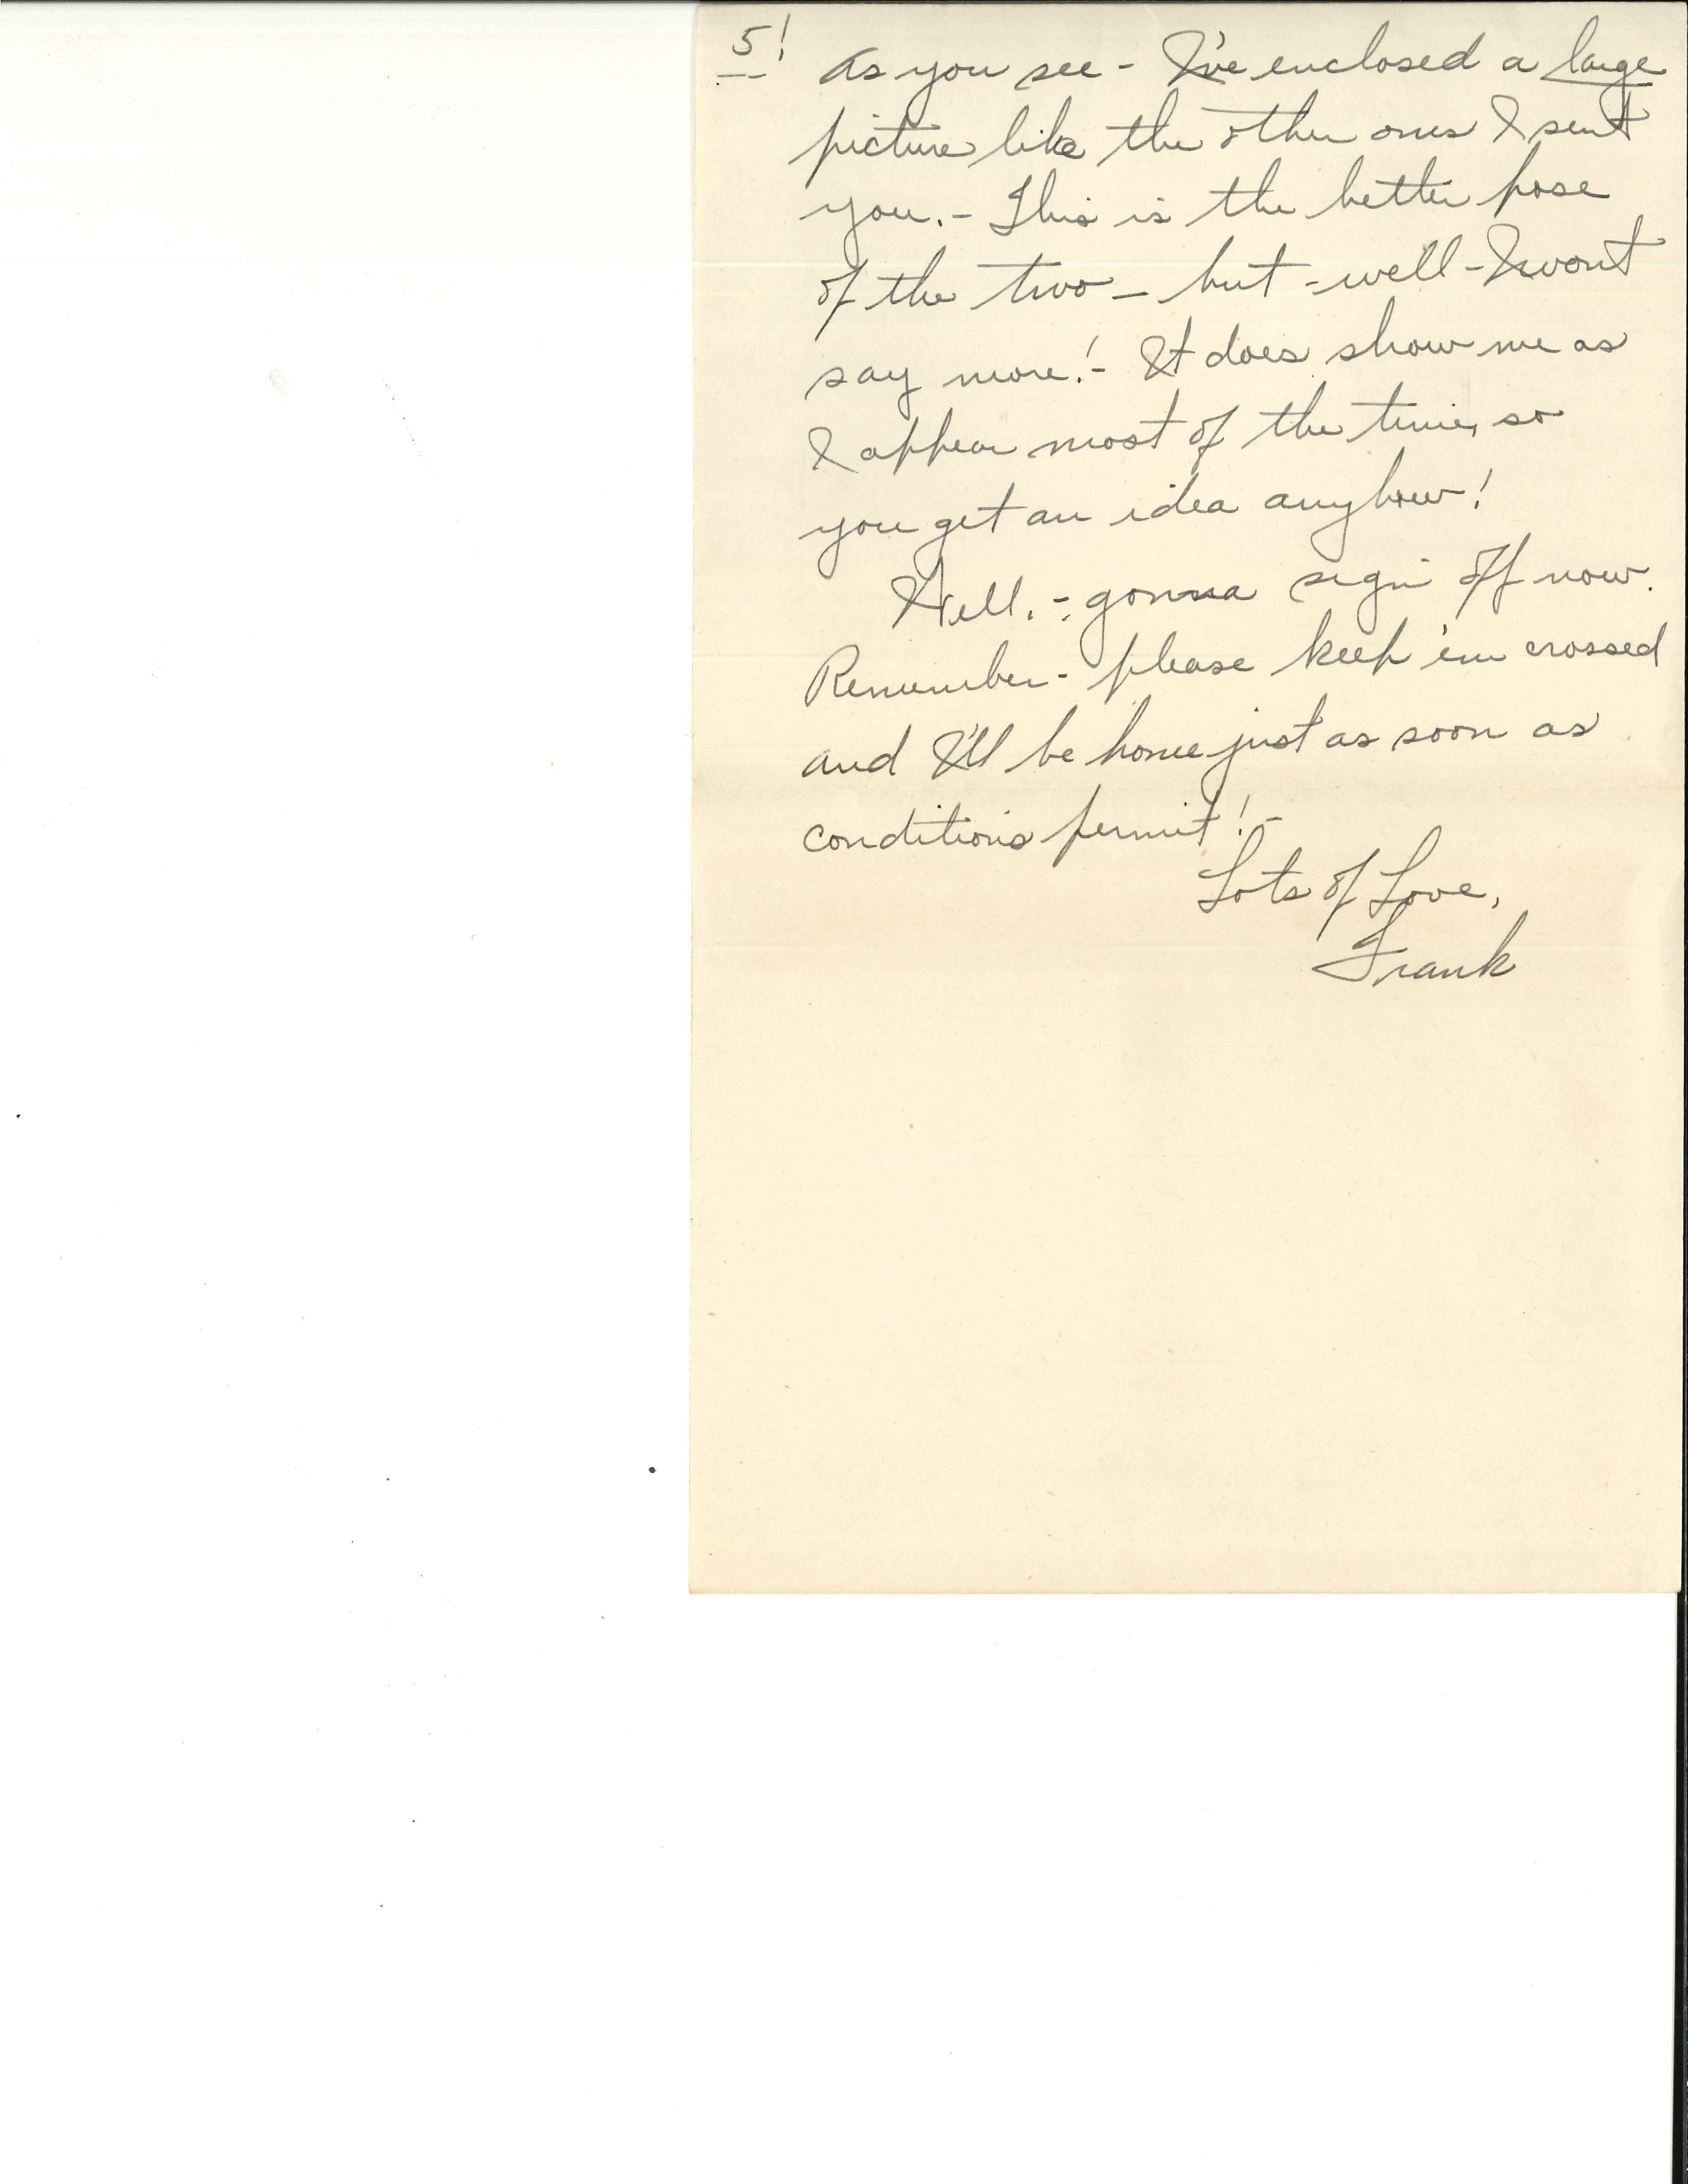 5!
As you see - I've enclosed a large
picture like the other ones I sent
you. - This is the better pose
of the two - but - well - I wont
say more! - It does show me as
I appear most of the time, so
you get an idea anyhow!
Well. - gonna sign off now.
Remember - please keep 'em crossed
and I'll be home just as soon as
conditions permit! -
Lots of Love,
Frank